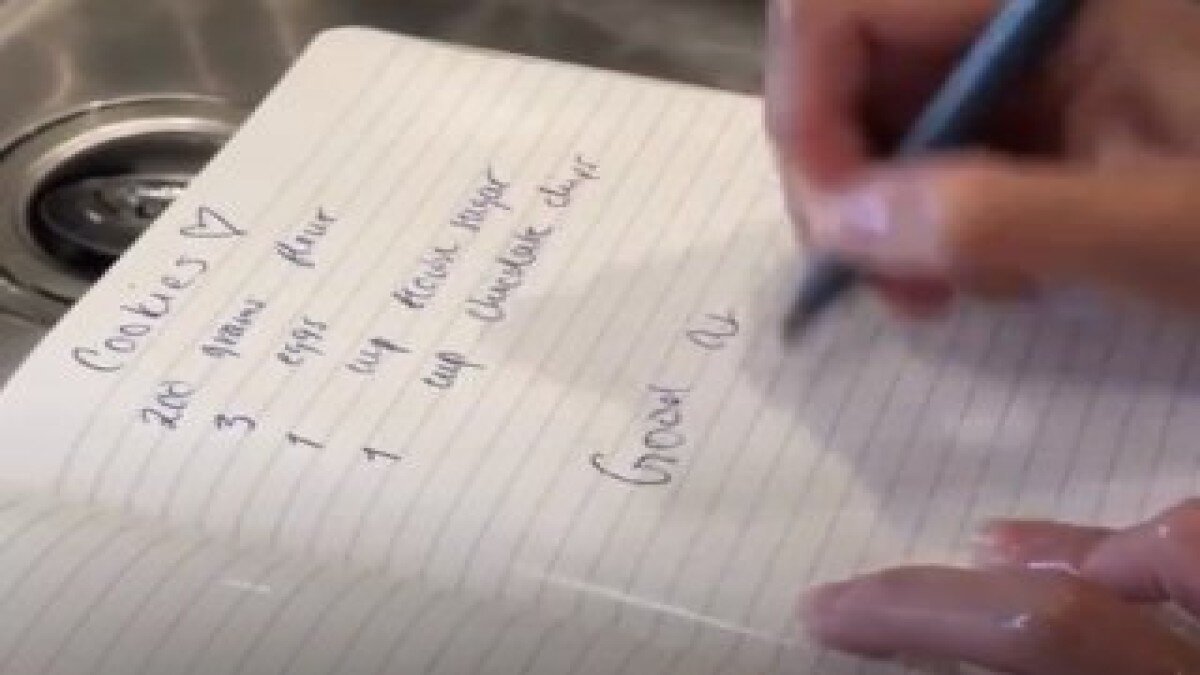 Cookies ♡
200 grams flour
3 eggs
1 cup sugar
1 cup chocolate chips